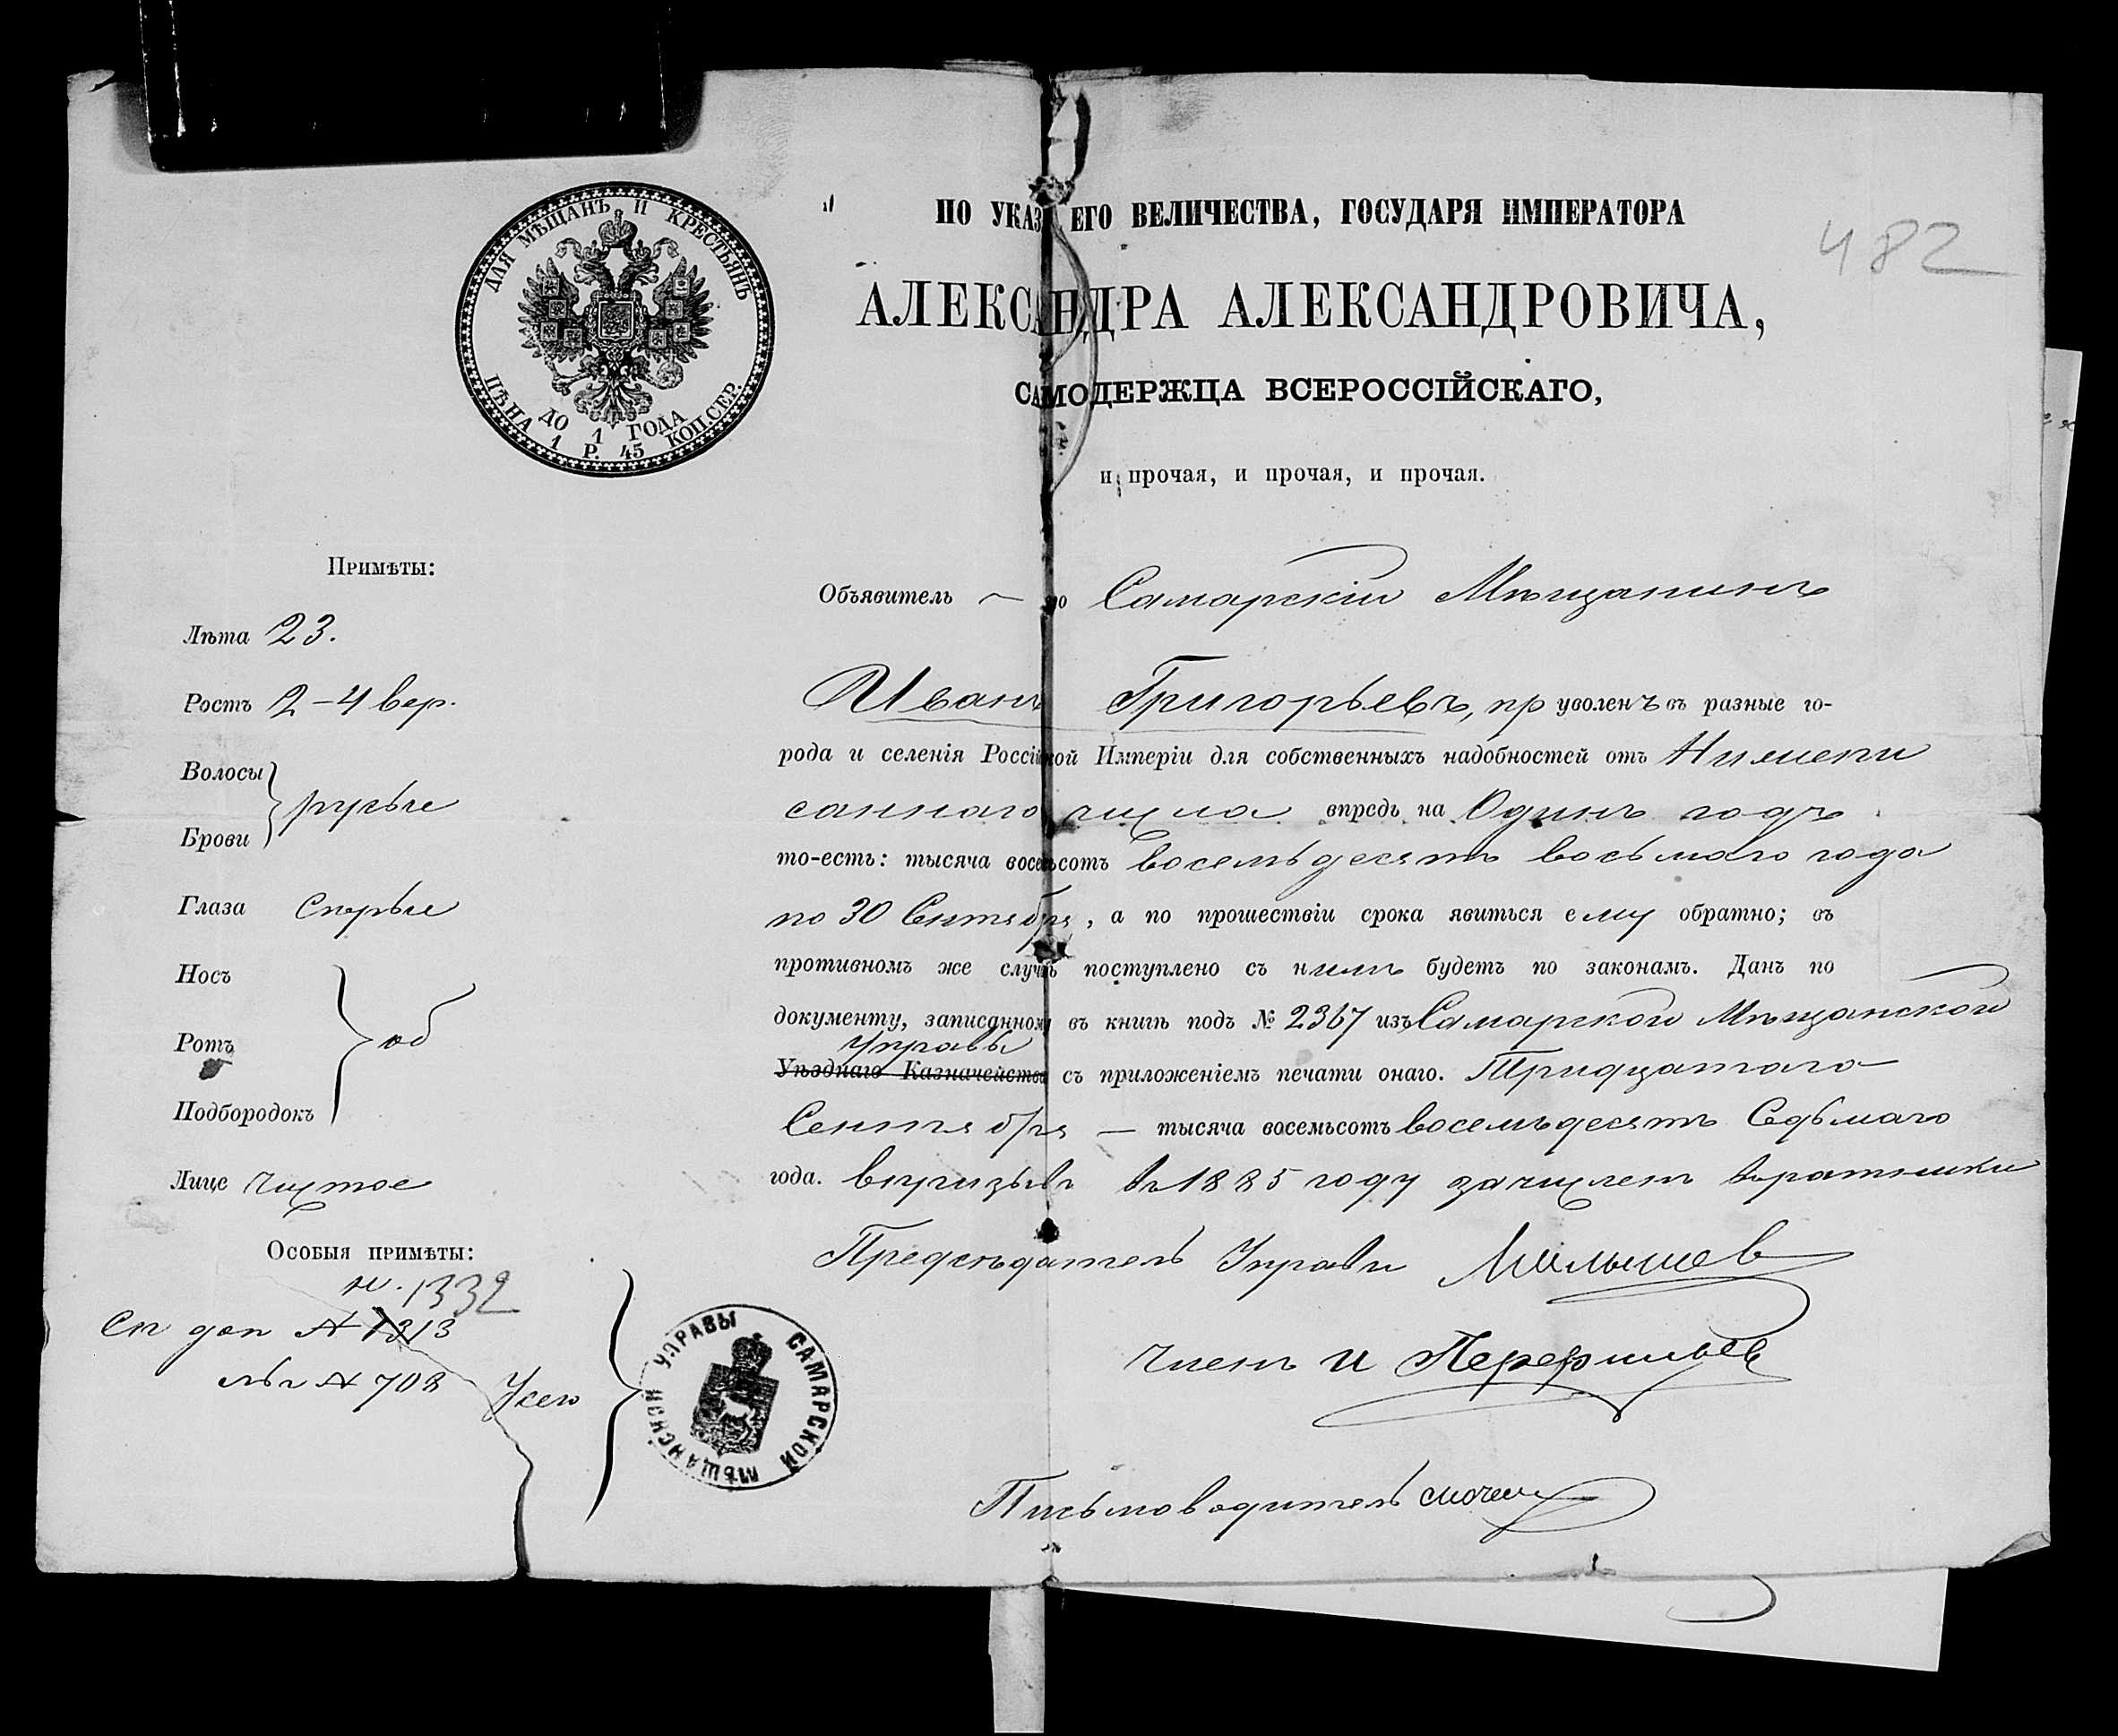 ДЛЯ МѢЩАНЪ И КРЕСТЬЯНЪ
ДО 1 ГОДА
ЦѢНА 1 Р. 45 КОП. СЕР.
ПО УКАЗ ЕГО ВЕЛИЧЕСТВА, ГОСУДАРЯ ИМПЕРАТОРА
482
АЛЕКСАНДРА АЛЕКСАНДРОВИЧА,
САМОДЕРЖЦА ВСЕРОССІЙСКАГО,
и прочая, и прочая, и прочая.
Примѣты:
Лѣта 23.
Ростъ 2–4 вер.
Волосы
Брови } русые
Глаза сѣрые
Носъ
Ротъ } об
Подбородокъ
Лице чистое
Особыя примѣты:
№. 1332
1313
№ 708
Объявитель Самарскій Мѣщанинъ
Иванъ Григорьевъ, пр уволенъ въ разные го-
рода и селенія Россійской Имперіи для собственныхъ надобностей отъ Нижепи
саннаго числа впредь на Одинъ годъ
то-есть: тысяча восемьсотъ восемьдесятъ восьмаго года
по 30 Сентября, а по прошествіи срока явиться ему обратно; въ
противномъ же случаѣ поступлено съ нимъ будетъ по законамъ. Данъ по
документу, записанному въ книгѣ подъ № 2367 изъ Самарской Мѣщанской
Управы
Уѣзднаго Казначейства съ приложеніемъ печати онаго. Тридцатаго
Сентября — тысяча восемьсотъ восемьдесятъ Седьмаго
года. Въ призывъ въ 1885 году зачисленъ въ ратники
Предсѣдатель Управы Малышев
Членъ И Перфильев
Письмоводитель
САМАРСКОЙ МѢЩАНСКОЙ УПРАВЫ